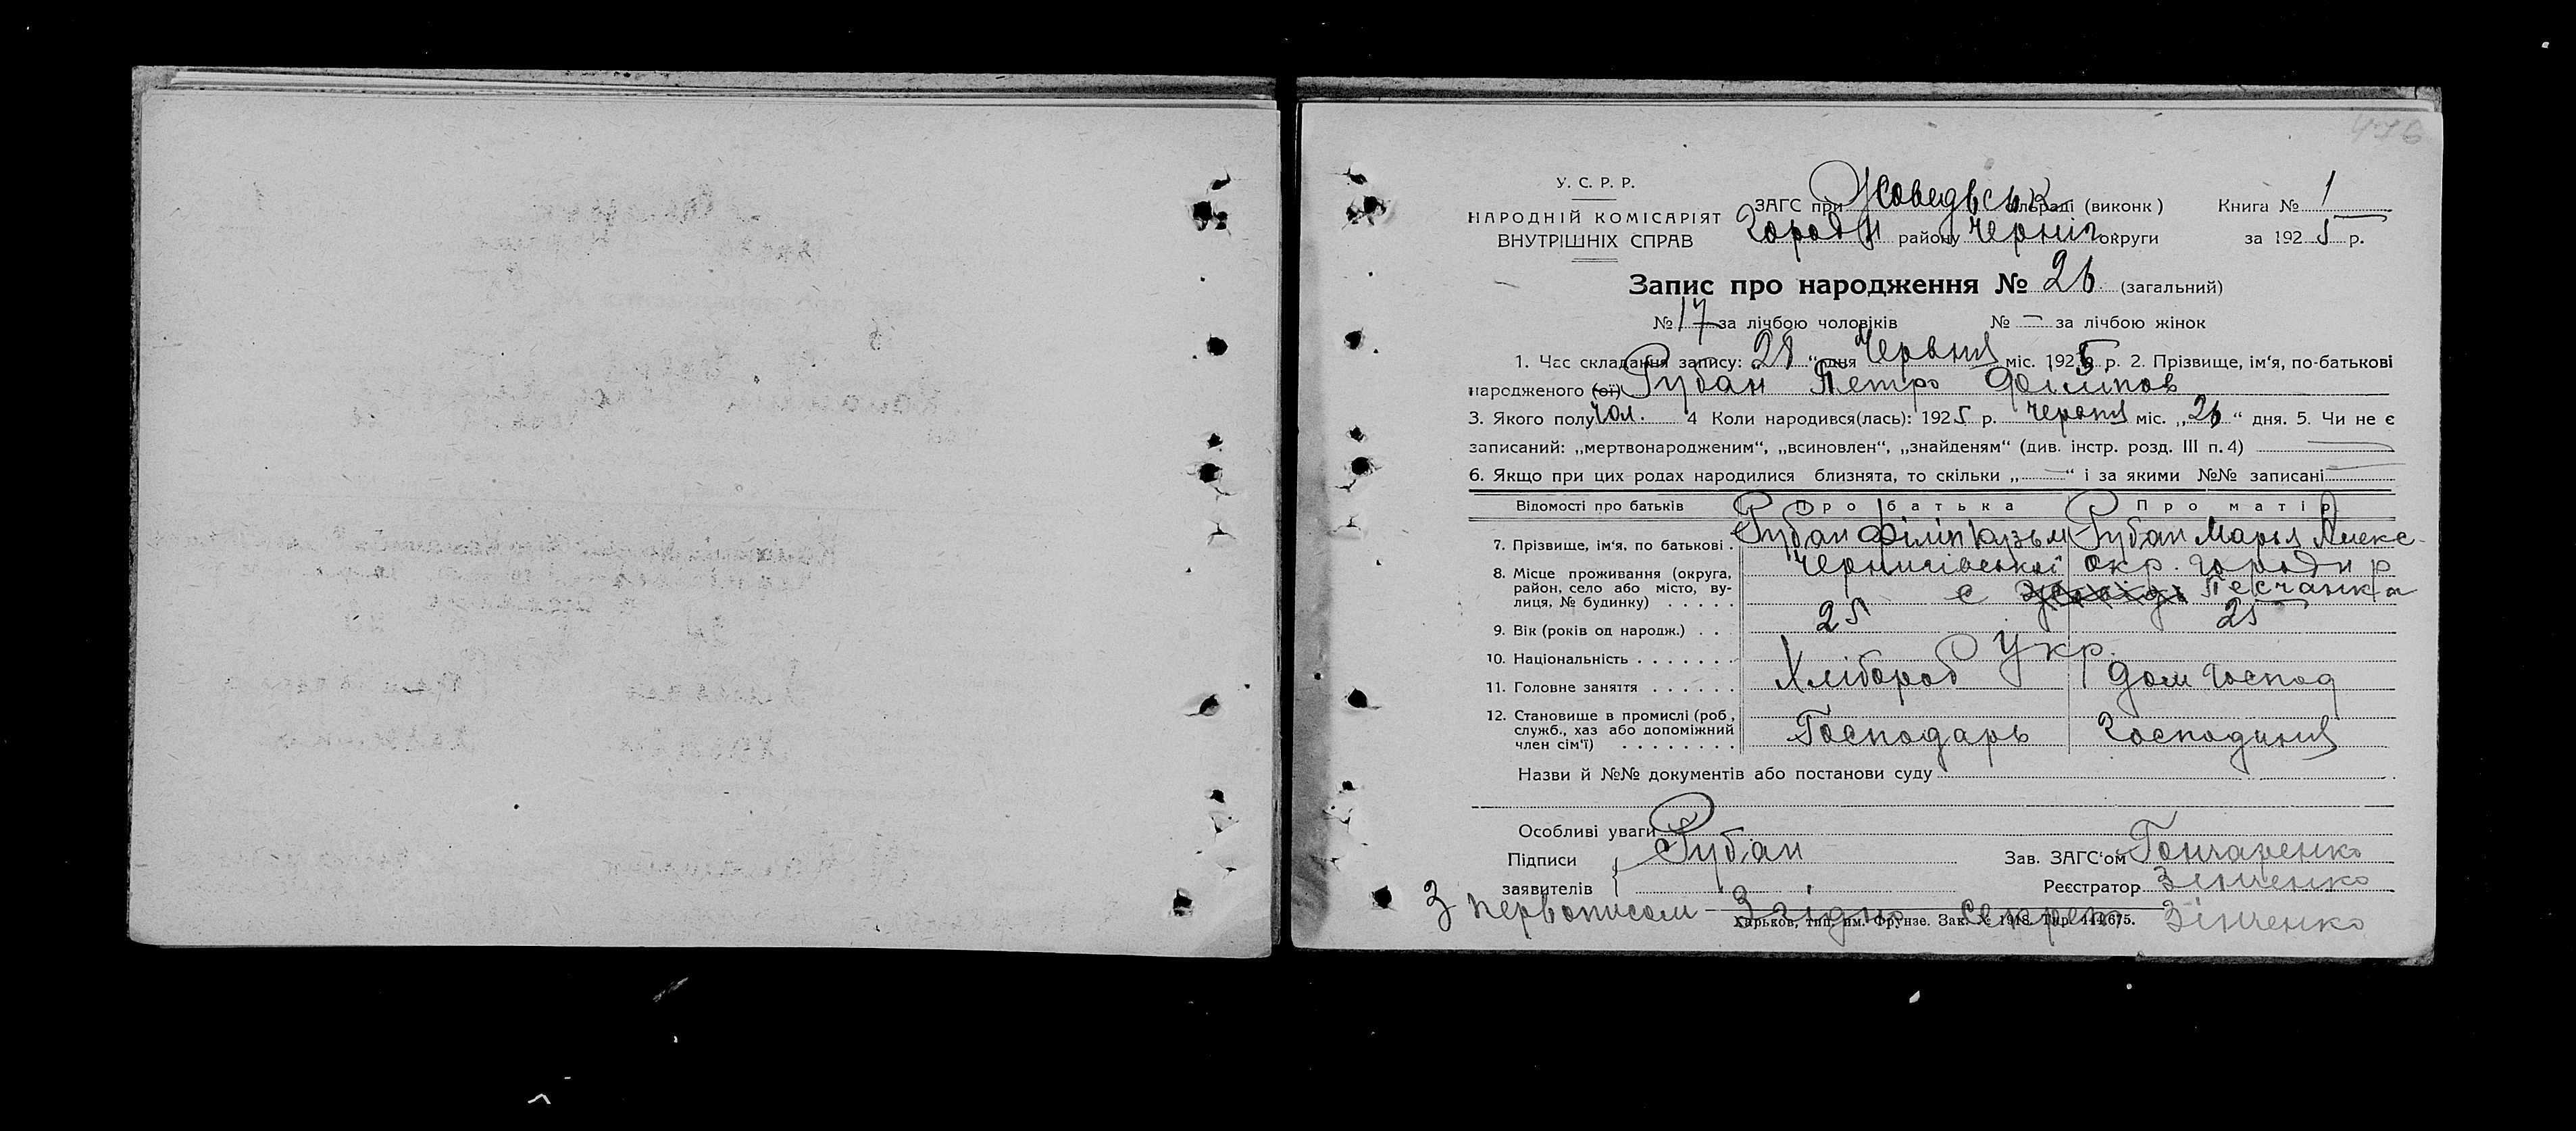 476
У. С. Р. Р.
НАРОДНІЙ КОМІСАРІЯТ
ВНУТРІШНІХ СПРАВ
ЗАГС при Жоведвськ сільраді (виконк)
Городн району Черніг округи
Книга № 1
за 1925 р.
Запис про народження № 26. (загальний)
№ 17 за лічбою чоловіків № — за лічбою жінок
1. Час складання запису: „28“ дня Червня міс. 1925 р. 2. Прізвище, ім‘я, по-батькові
народженого (ої) Рубан Петро Филипов
3. Якого полу Чол. 4 Коли народився(лась): 1925 р. червня міс. „26“ дня. 5. Чи не є
записаний: „мертвонародженим“, „всиновлен“, „знайденям“ (див. інстр. розд. III п. 4) —
6. Якщо при цих родах народилися близнята, то скільки „—“ і за якими №№ записані —
Відомості про батьків Про батька Про матір
7. Прізвище, ім‘я, по батькові . Рубан Філіп Кузьм Рубан Марья Алекс-
8. Місце проживання (округа, район, село або місто, вулиця, № будинку) . . . . . Чернигівської окр. Городн р
с Песчанка
9. Вік (років од народж.) . . 25 25
10. Національність . . . . . . . Укр.
11. Головне заняття . . . . . . Хлібороб Дом господ
12. Становище в промислі (роб, служб., хаз або допоміжний член сім‘ї) . . . . . . . . Господарь Господиня
Назви й №№ документів або постанови суду
Особливі уваги
Підписи заявителів { Рубан
Зав. ЗАГС‘ом Гончаренко
Реєстратор Зінченко
З первописом Згідно Секрет Зінченко
Харьков, тип. им. Фрунзе. Зак. № 1918. Тир. 144675.